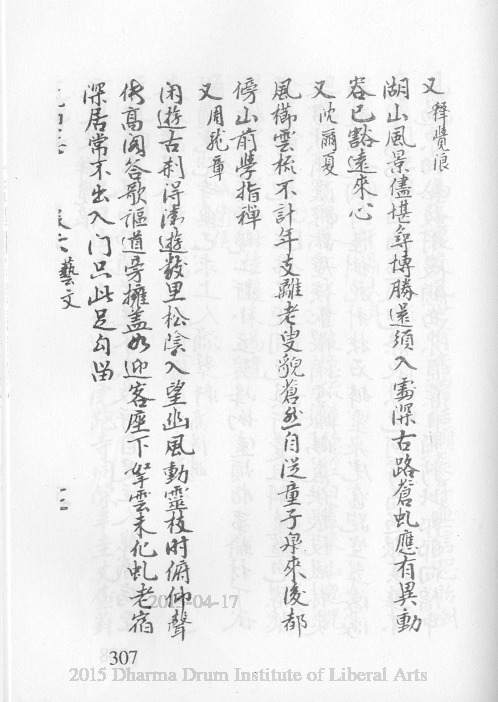 又 释覺浪
湖山風景儘堪尋博勝還須入雲深古路蒼虬應有異動
容已豁遠來心
又 沈爾夏
風櫛雲梳不計年支離老叟貌蒼然自從童子參來後都
傍山前學指禅
又 周龍章
闲遊古刹得清遊數里松陰入望幽風動靈枝时俯仰聲
傳高阁谷歌謳道旁擁盖如迎客座下拏雲未化虬老宿
深居常不出入门只此足勾留
藝文
2015-04-17
307
2015 Dharma Drum Institute of Liberal Arts